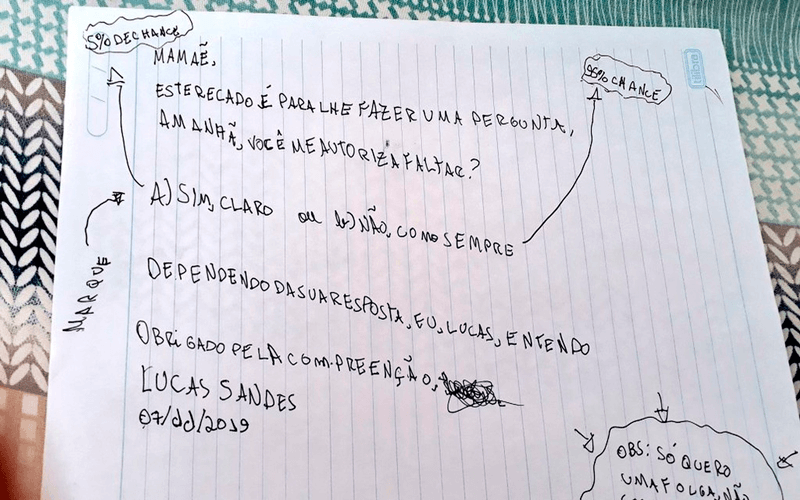 5% DE CHANCE
95% CHANCE
tilibra
MAMAÊ,
ESTE RECADO É PARA LHE FAZER UMA PERGUNTA,
AMANHÃ, VOCÊ ME AUTORIZA FALTAR?
A) SIM, CLARO ou b) NÃO, COMO SEMPRE
MARQUE
DEPENDENDO DA SUA RESPOSTA, EU, LUCAS, ENTENDO
OBRIGADO PELA COMPREENÇÃO,
LUCAS SANDES
07/11/2019
OBS: SÓ QUERO
UMA FOLGA, NÃO